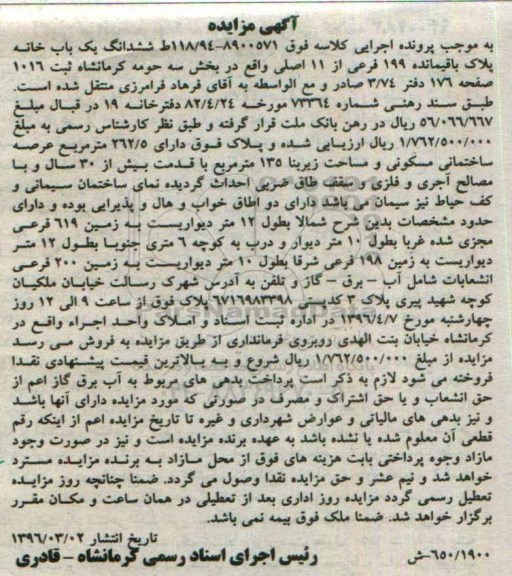 آگهی مزایده
به موجب پرونده اجرایی کلاسه فوق ۸۹۰۰۵۷۱-۱۱۸/۹۴ط ششدانگ یک باب خانه
پلاک باقیمانده ۱۹۹ فرعی از ۱۱ اصلی واقع در بخش سه حومه کرمانشاه ثبت ۱۰۱۶
صفحه ۱۷۶ دفتر ۳/۷۴ صادر و مع الواسطه به آقای فرهاد فرامرزی منتقل شده است.
طبق سند رهنی شماره ۷۳۳۶۴ مورخه ۸۲/۴/۲۴ دفترخانه ۱۹ در قبال مبلغ
۵۶/۰۶۶/۶۶۷ ریال در رهن بانک ملت قرار گرفته و طبق نظر کارشناس رسمی به مبلغ
۱/۷۶۲/۵۰۰/۰۰۰ ریال ارزیابی شده و پلاک فوق دارای ۲۶۲/۵ مترمربع عرصه
ساختمانی مسکونی و مساحت زیربنا ۱۳۵ مترمربع با قدمت بیش از ۳۰ سال و با
مصالح آجری و فلزی و سقف طاق ضربی احداث گردیده نمای ساختمان سیمانی و
کف حیاط نیز سیمان می باشد دارای دو اطاق خواب و هال و پذیرایی بوده و دارای
حدود مشخصات بدین شرح شمالا بطول ۱۲ متر دیواریست به زمین ۶۱۹ فرعی
مجزی شده غربا بطول ۱۰ متر دیوار و درب به کوچه ۶ متری جنوبا بطول ۱۲ متر
دیواریست به زمین ۱۹۸ فرعی شرقا بطول ۱۰ متر دیواریست به زمین ۲۰۰ فرعی
انشعابات شامل آب - برق - گاز و تلفن به آدرس شهرک رسالت خیابان ملکیان
کوچه شهید پیری پلاک ۳ کدپستی ۶۷۱۶۹۸۳۳۹۸ پلاک فوق از ساعت ۹ الی ۱۲ روز
چهارشنبه مورخ ۱۳۹۶/۴/۷ در اداره ثبت اسناد و املاک واحد اجراء واقع در
کرمانشاه خیابان بنت الهدی روبروی فرمانداری از طریق مزایده به فروش می رسد
مزایده از مبلغ ۱/۷۶۲/۵۰۰/۰۰۰ ریال شروع و به بالاترین قیمت پیشنهادی نقدا
فروخته می شود لازم به ذکر است پرداخت بدهی های مربوط به آب برق گاز اعم از
حق انشعاب و یا حق اشتراک و مصرف در صورتی که مورد مزایده دارای آنها باشد
و نیز بدهی های مالیاتی و عوارض شهرداری و غیره تا تاریخ مزایده اعم از اینکه رقم
قطعی آن معلوم شده یا نشده باشد به عهده برنده مزایده است و نیز در صورت وجود
مازاد وجوه پرداختی بابت هزینه های فوق از محل مازاد به برنده مزایده مسترد
خواهد شد و نیم عشر و حق مزایده نقدا وصول می گردد. ضمنا چنانچه روز مزایده
تعطیل رسمی گردد مزایده روز اداری بعد از تعطیلی در همان ساعت و مکان مقرر
برگزار خواهد شد. ضمنا ملک فوق بیمه نمی باشد.
تاریخ انتشار ۱۳۹۶/۰۳/۰۲
۶۵۰/۱۹۰۰-ش رئیس اجرای اسناد رسمی کرمانشاه - قادری